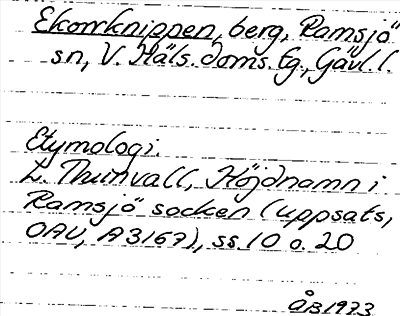 Ekorrknippen, berg, Ramsjö
sn, V. Häls. doms. Fg., Gävl. l.
Etymologi.
L. Thunvall, Höjdnamn i
Ramsjö socken (uppsats,
OAU, A3167), ss. 10 o. 20
ÅB 1973